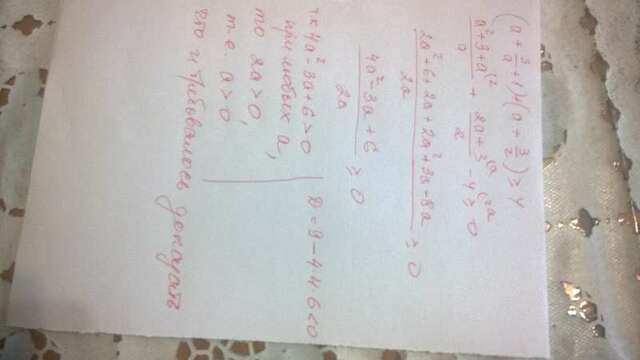 (a + 3/a + 1) + (a + 3/2) ≥ 4
(a² + 3 + a)/a (2 + (2a + 3)/2 (a - 4 ≥ 0 (2a
(2a² + 6 + 2a + 2a² + 3a - 8a)/2a ≥ 0
(4a² - 3a + 6)/2a ≥ 0
т.к 4a² - 3a + 6 > 0 | D = 9 - 4·4·6 < 0
при любых a,
то 2a > 0,
т.е. a > 0,
что и требовалось доказать